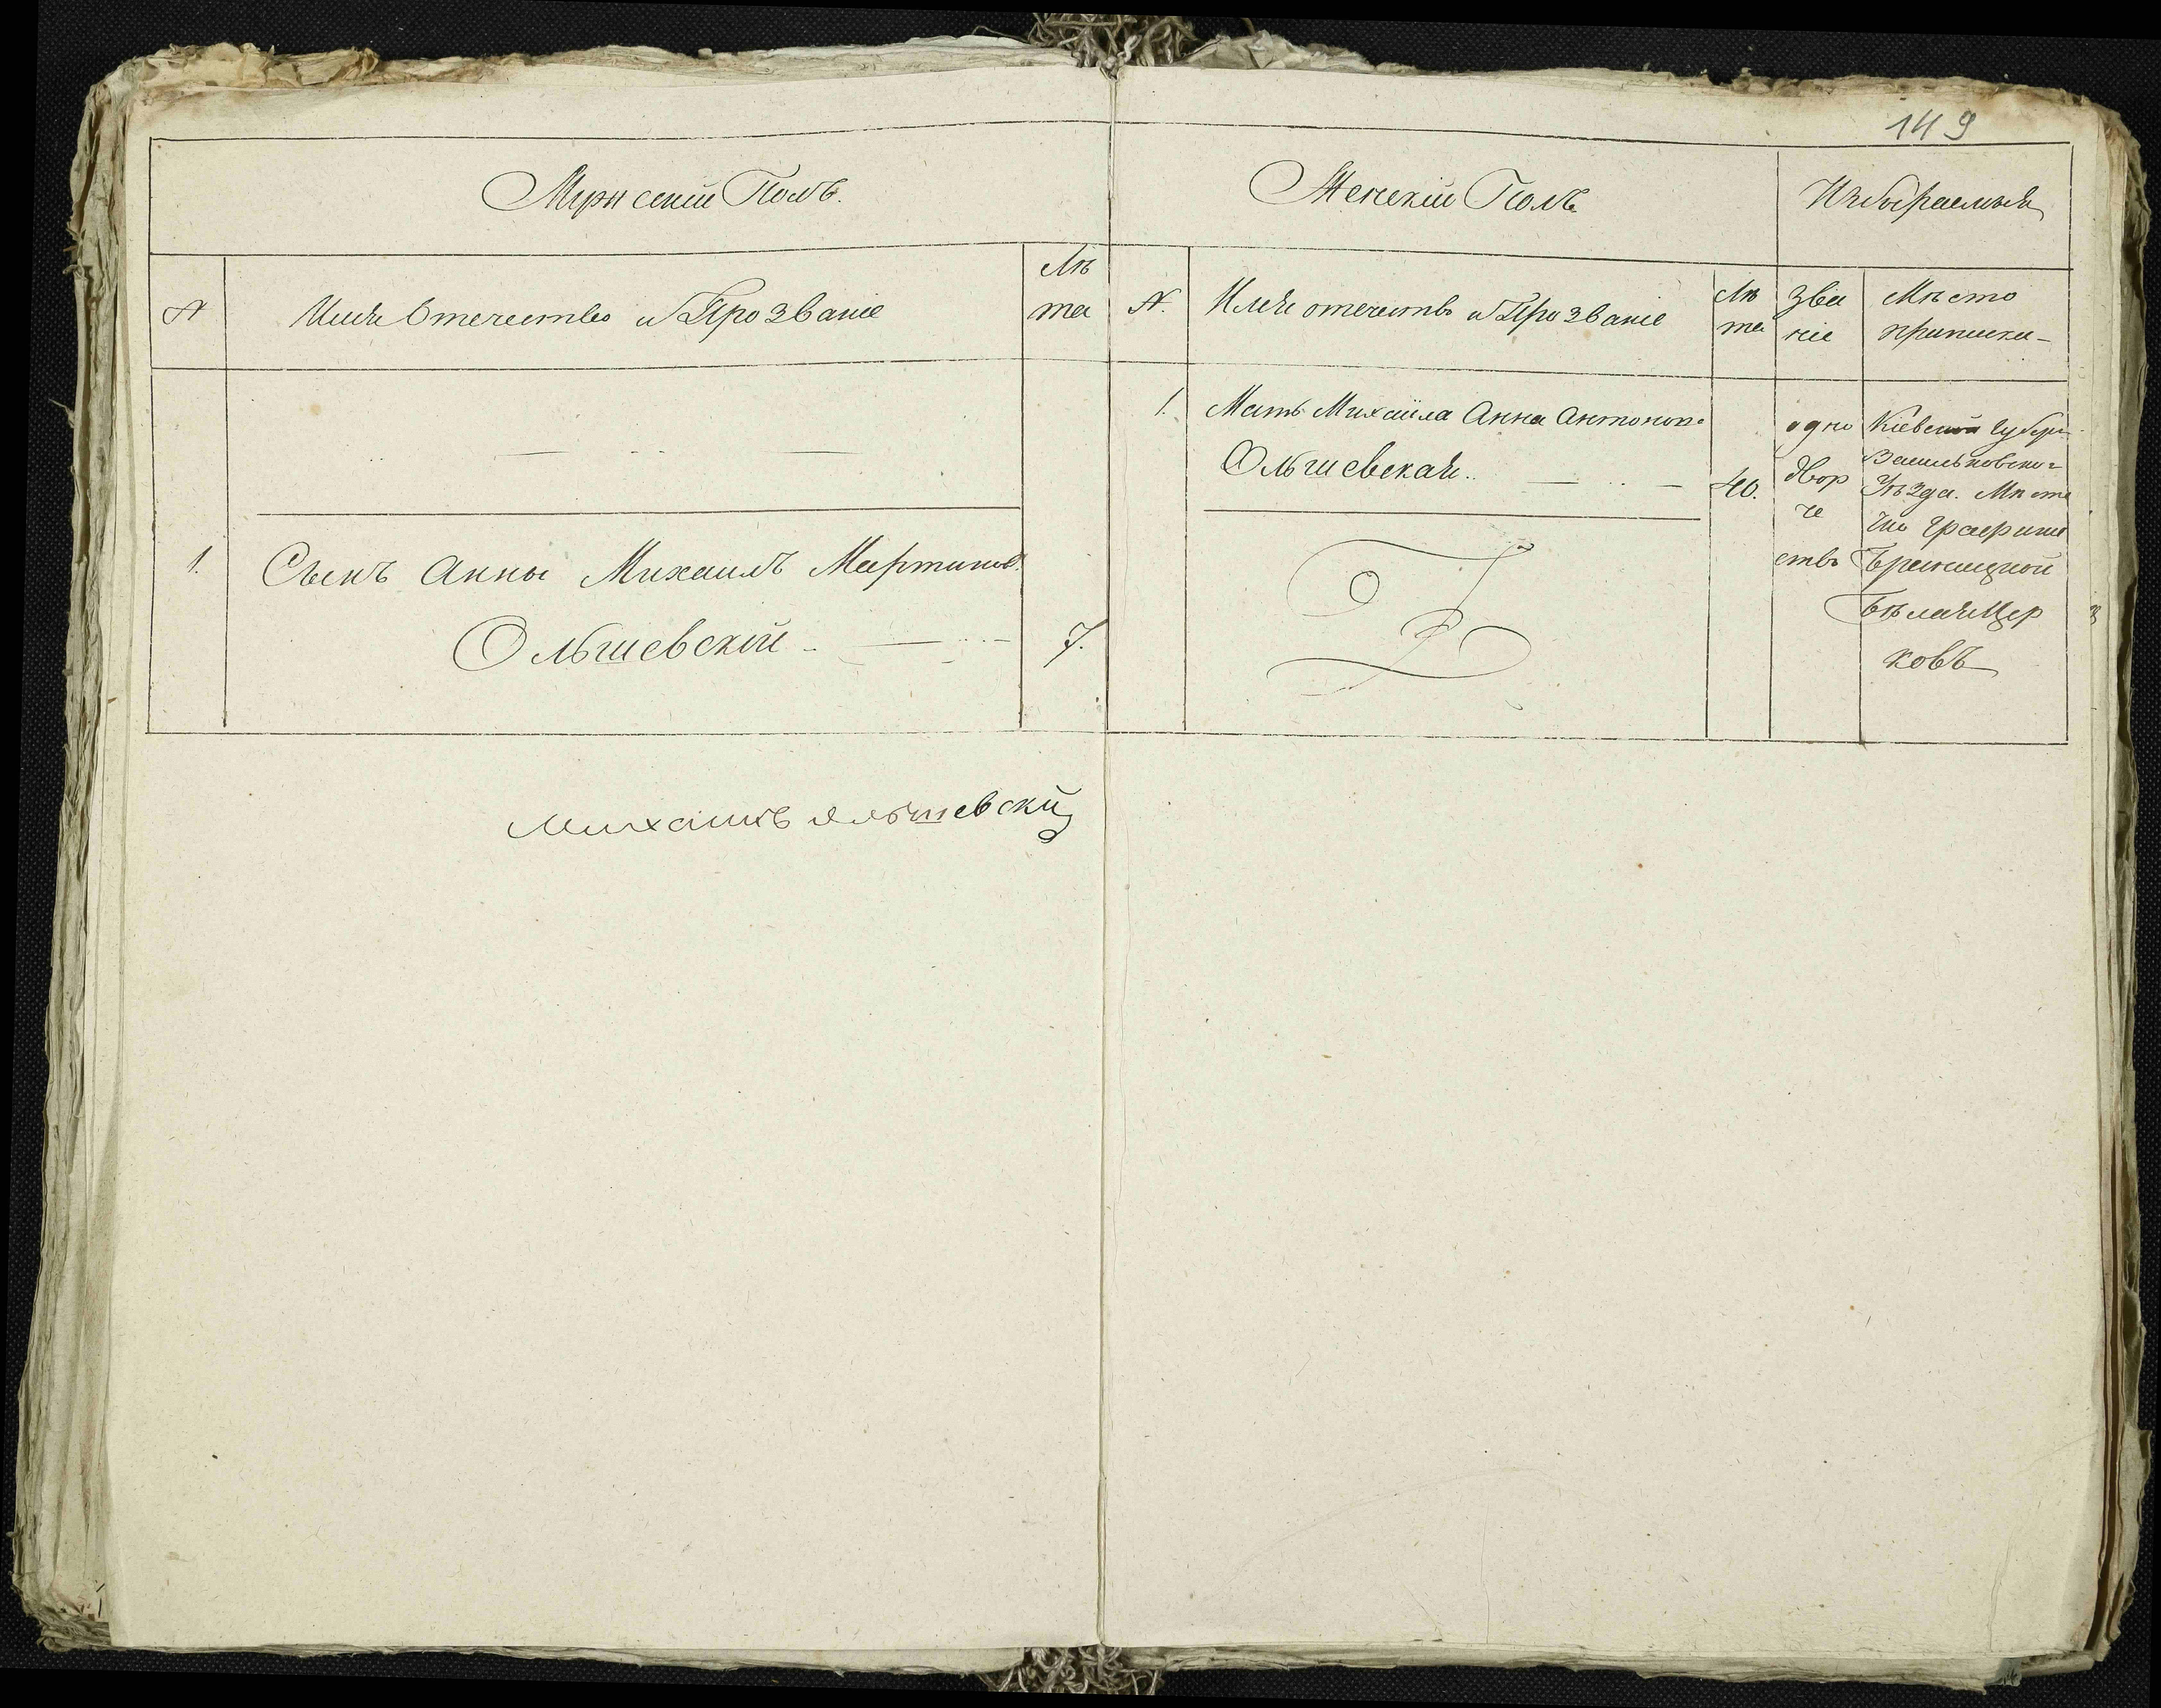 149
Мужескій Полъ.
Женскій Полъ
Избираемыя
N
Имя Отечество и Прозваніе
Лѣ
та
N.
Имя отечество и Прозваніе
Лѣ
та
Зва
ніе
Мѣсто
приписки
1.
Мать Михаила Анна Антонов.
Ольшевская.
40.
одно
двор
че
ство
Кіевской Губер
Васильковско
Уѣзда. Мѣсте
чко Графини
Браницкой
Бѣлая Цер
ковъ
1.
Сынъ Анны Михаилъ Мартинов.
Ольшевскій
7.
Михаилъ Ольшевскій